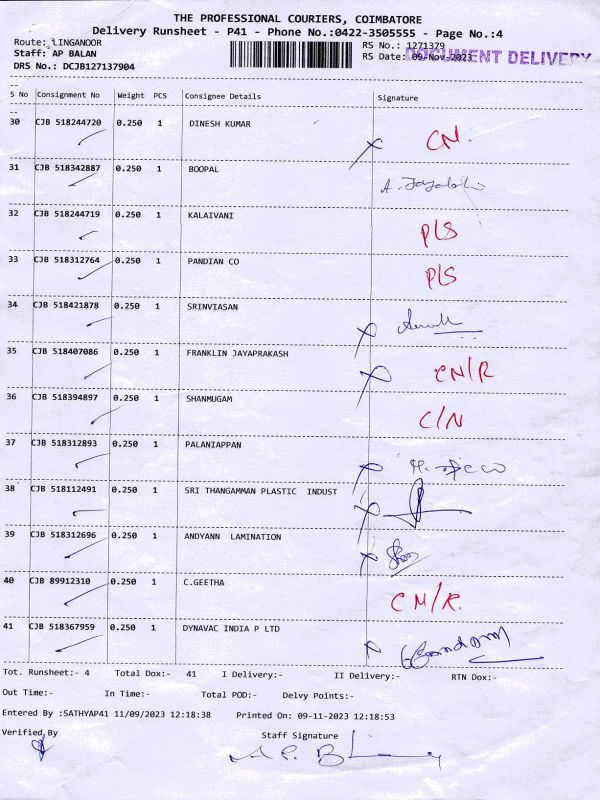 THE PROFESSIONAL COURIERS, COIMBATORE
Delivery Runsheet - P41 - Phone No.:0422-3505555 - Page No.:4
Route: LINGANOOR RS No.: 1271379
Staff: AP BALAN RS Date: 09-Nov-2023 DOCUMENT DELIVERY
DRS No.: DCJB127137904
S No Consignment No Weight PCS Consignee Details Signature
30 CJB 518244720 0.250 1 DINESH KUMAR CN.
31 CJB 518342887 0.250 1 BOOPAL
32 CJB 518244719 0.250 1 KALAIVANI P/S
33 CJB 518312764 0.250 1 PANDIAN CO P/S
34 CJB 518421878 0.250 1 SRINVIASAN
35 CJB 518407086 0.250 1 FRANKLIN JAYAPRAKASH CN/R
36 CJB 518394897 0.250 1 SHANMUGAM C/N
37 CJB 518312893 0.250 1 PALANIAPPAN
38 CJB 518112491 0.250 1 SRI THANGAMMAN PLASTIC INDUST
39 CJB 518312696 0.250 1 ANDYANN LAMINATION
40 CJB 89912310 0.250 1 C.GEETHA CN/R.
41 CJB 518367959 0.250 1 DYNAVAC INDIA P LTD
Tot. Runsheet:- 4 Total Dox:- 41 I Delivery:- II Delivery:- RTN Dox:-
Out Time:- In Time:- Total POD:- Delvy Points:-
Entered By :SATHYAP41 11/09/2023 12:18:38 Printed On: 09-11-2023 12:18:53
Verified By Staff Signature